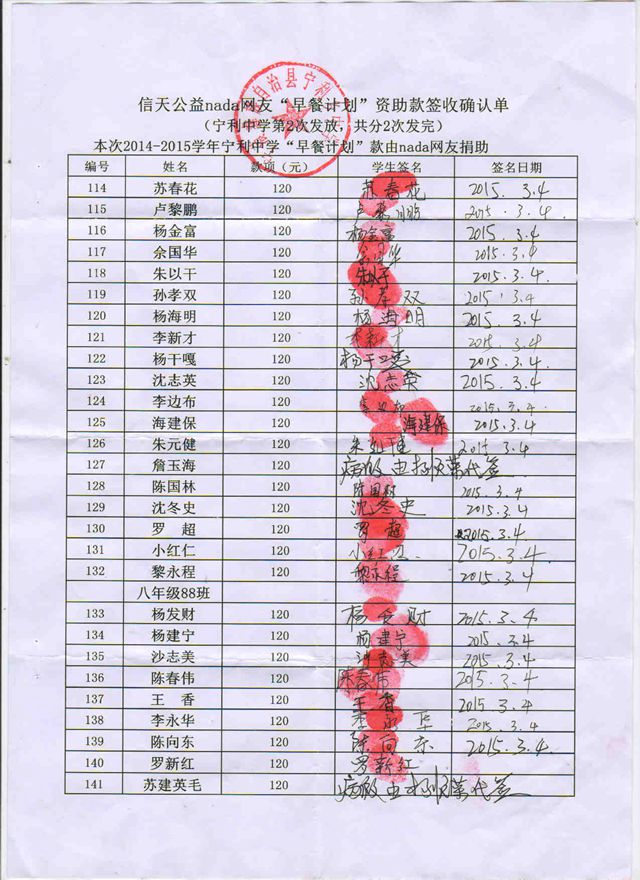 信天公益nada网友“早餐计划”资助款签收确认单
（宁利中学第2次发放，共分2次发完）
本次2014-2015学年宁利中学“早餐计划”款由nada网友捐助
编号 姓名 款项（元） 学生签名 签名日期
114 苏春花 120 苏春花 2015.3.4
115 卢黎鹏 120 卢黎鹏 2015.3.4
116 杨金富 120 杨金富 2015.3.4
117 余国华 120 2015.3.4
118 朱以干 120 朱以干 2015.3.4
119 孙孝双 120 孙孝双 2015.3.4
120 杨海明 120 杨海明 2015.3.4
121 李新才 120 2015.3.4
122 杨干嘎 120 杨干 2015.3.4
123 沈志英 120 沈志英 2015.3.4
124 李边布 120 2015.3.4
125 海建保 120 海建保 2015.3.4
126 朱元健 120 朱元健 2015.3.4
127 詹玉海 120 病假由 代签
128 陈国林 120 陈国林 2015.3.4
129 沈冬史 120 沈冬史 2015.3.4
130 罗 超 120 罗超 2015.3.4
131 小红仁 120 小红仁 2015.3.4
132 黎永程 120 黎永程 2015.3.4
八年级88班
133 杨发财 120 杨发财 2015.3.4
134 杨建宁 120 杨建宁 2015.3.4
135 沙志美 120 沙志美 2015.3.4
136 陈春伟 120 陈春伟 2015.3.4
137 王 香 120 王香 2015.3.4
138 李永华 120 李永华 2015.3.4
139 陈向东 120 陈向东 2015.3.4
140 罗新红 120 罗新红 2015.3.4
141 苏建英毛 120 病假由 代签